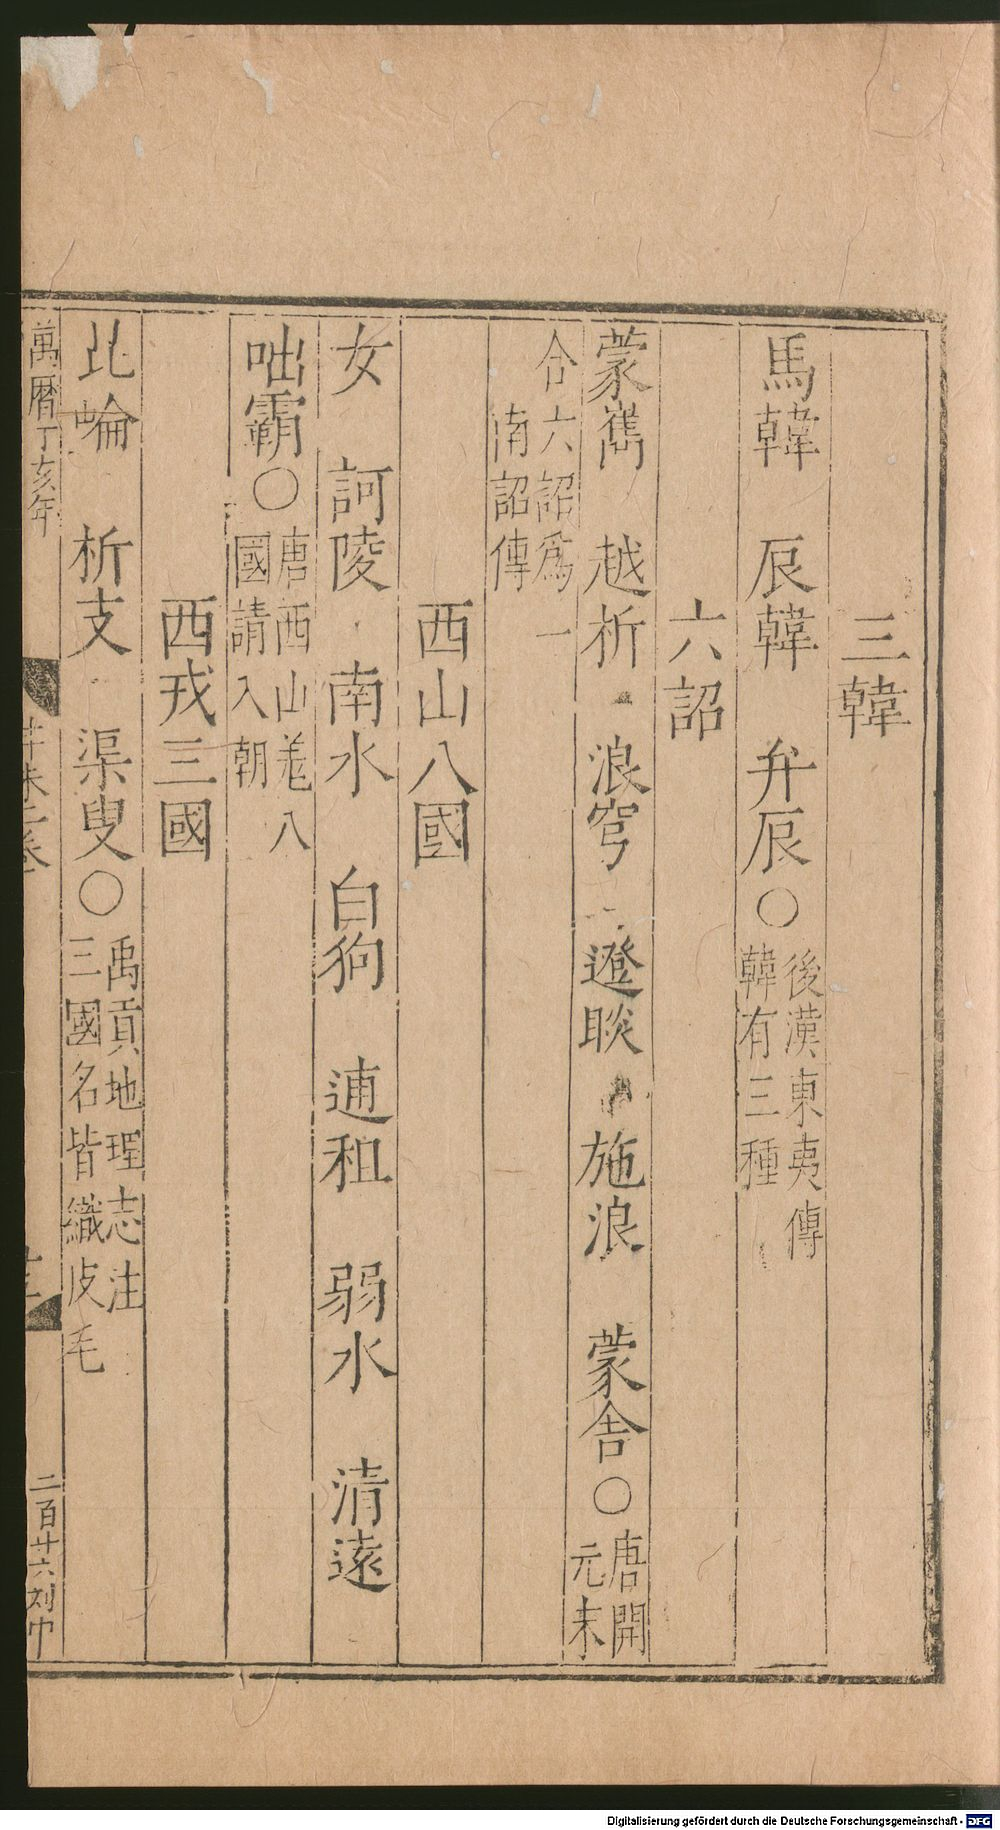 三韓
馬韓 辰韓 弁辰○後漢東夷傳韓有三種
六詔
蒙嶲 越析 浪穹 邆睒 施浪 蒙舍○唐開元末
合六詔爲一南詔傳
西山八國
女 訶陵 南水 白狗 逋租 弱水 清遠
咄霸○唐西山羗八國請入朝
西戎三國
崐崘 析支 渠叟○禹貢地理志注三國名皆織皮毛
萬曆丁亥年
二百廿六刘中
Digitalisierung gefördert durch die Deutsche Forschungsgemeinschaft - DFG